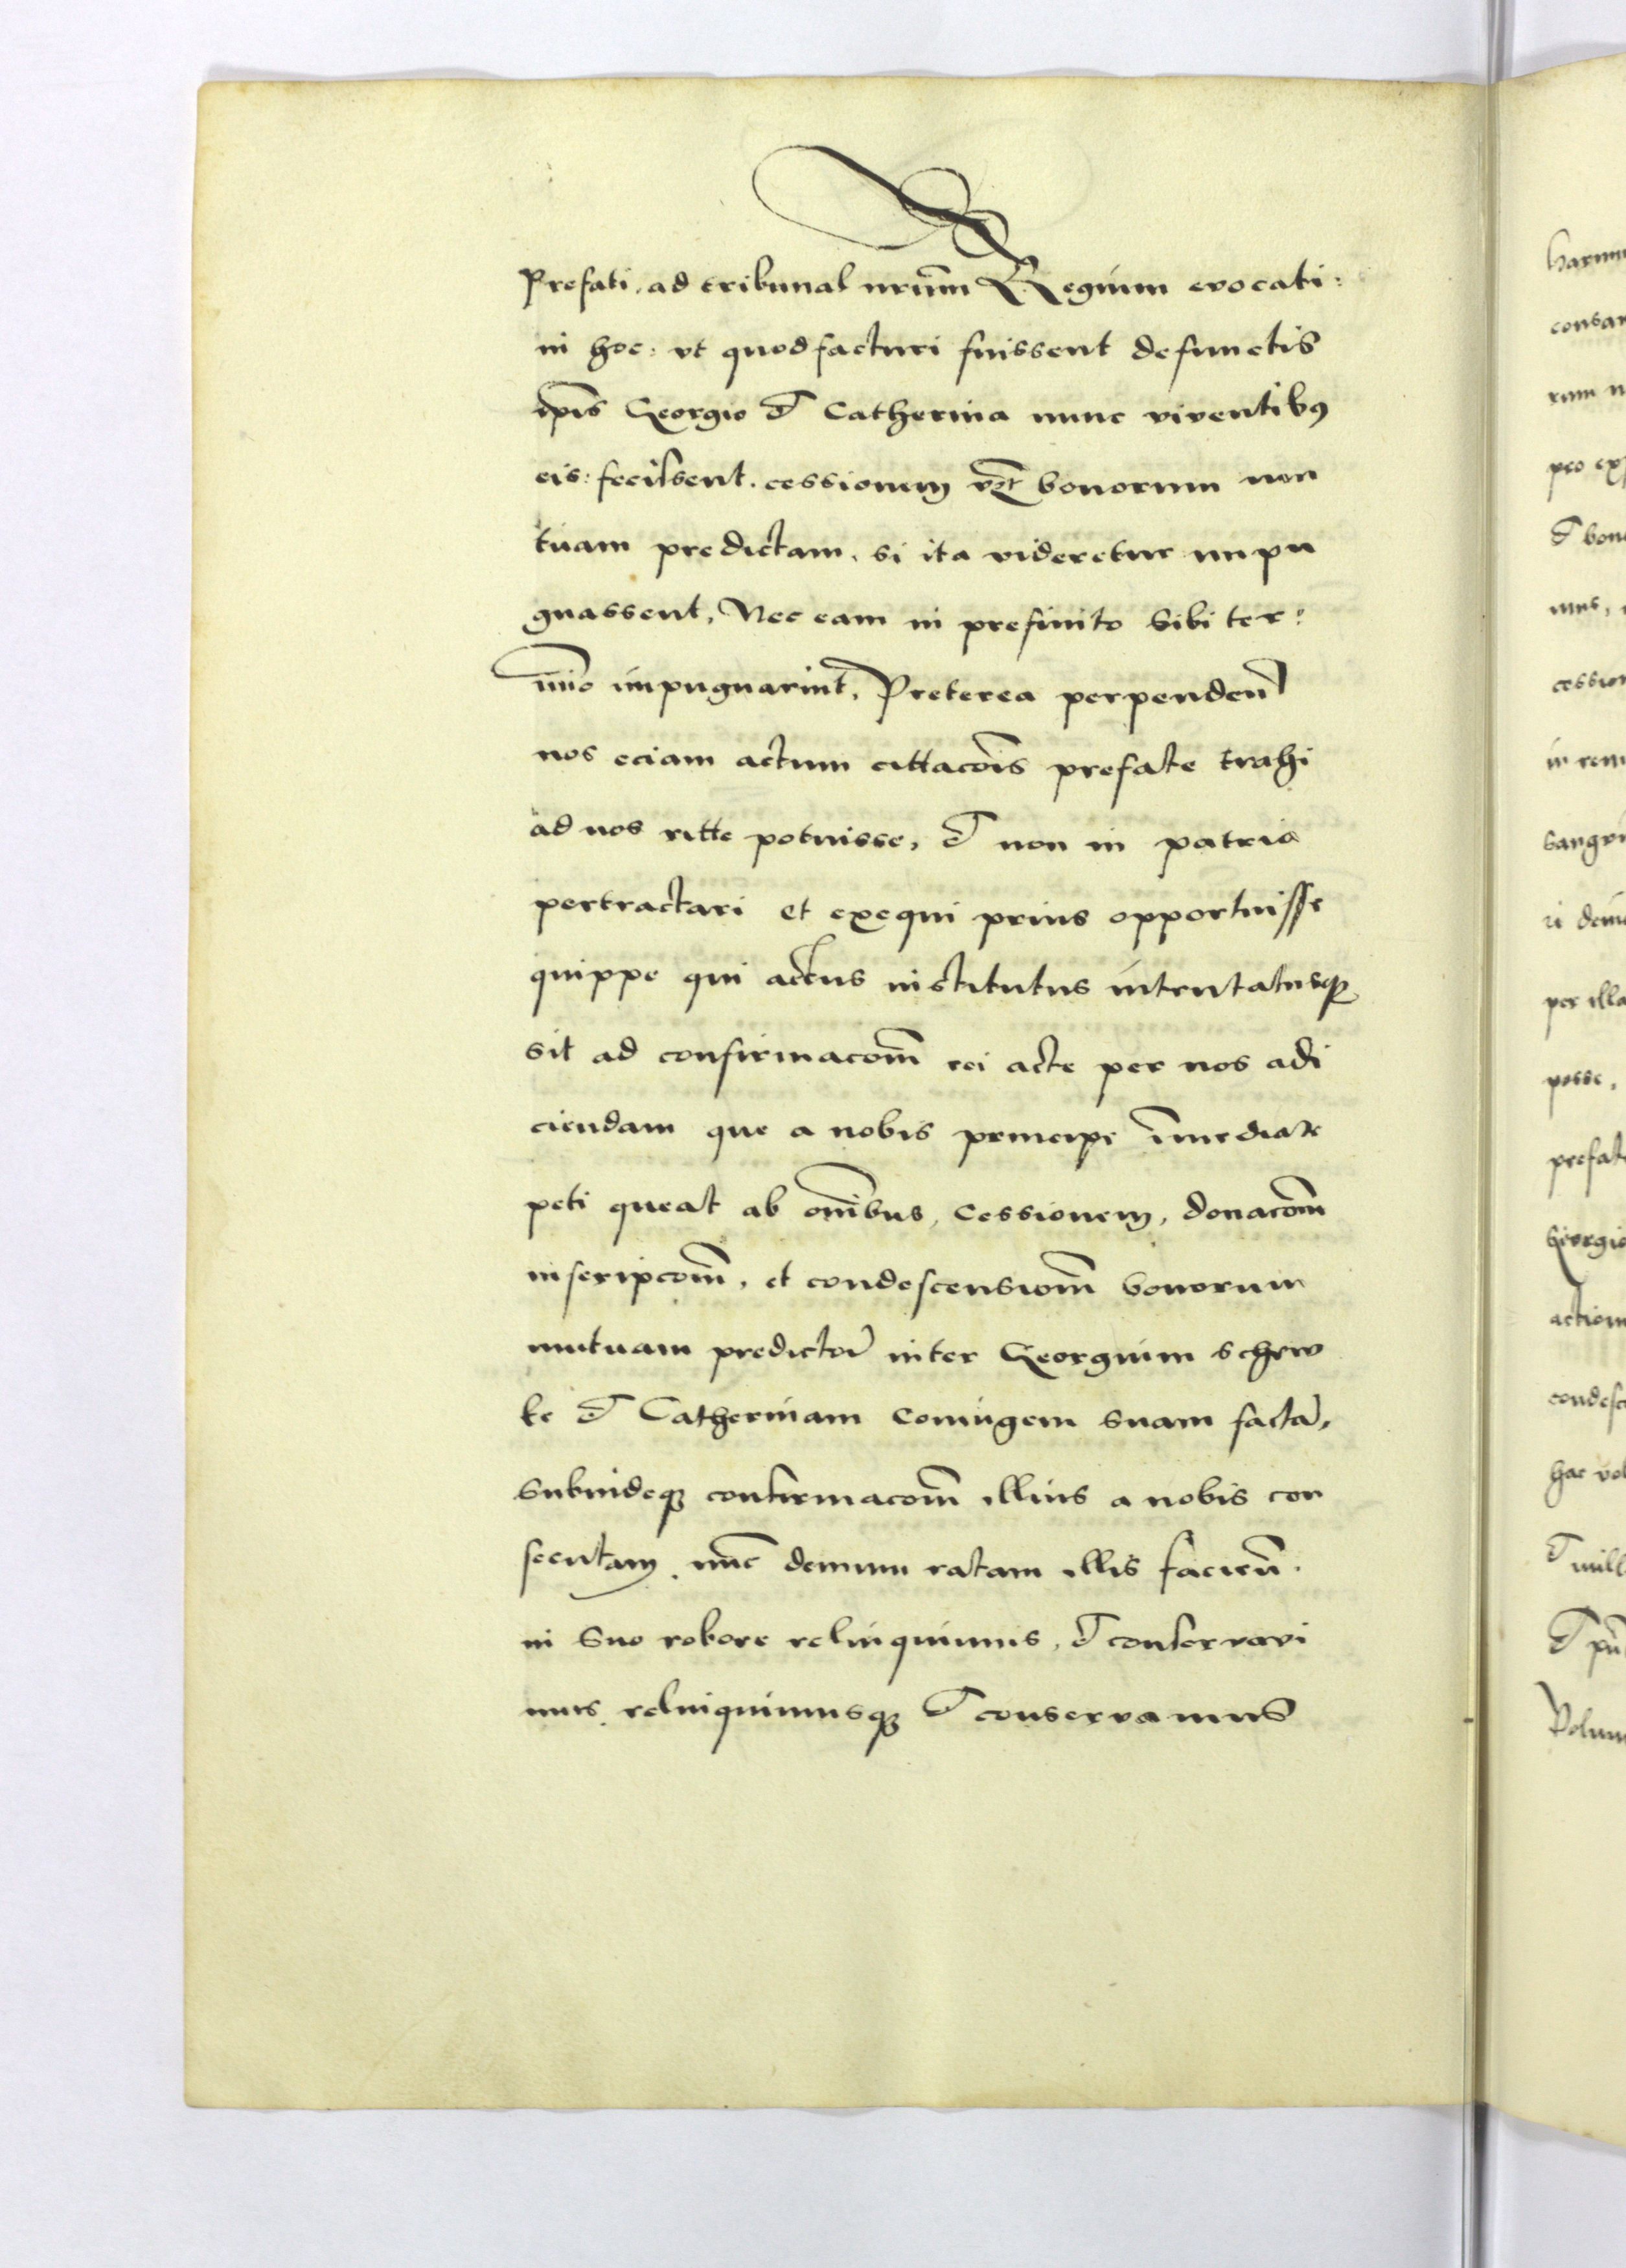 Prefati, ad tribunal nrũm Regium evocati:
in hoc: vt quod facturi fuissent defunctis
ip̃is Georgio et Catherina nunc viventibꝰ
eis: fecissent. cessionem vꝫt bonorum mu
tuam predictam, si ita videretur impu
gnassent, Nec eam in prefinito sibi ter:
mĩo impugnarint, Preterea perpendeñ
nos eciam actum cittacõis prefate trahi
ad nos ritte potuisse, et non in patria
pertractari et exequi prius opportuisse
quippe qui actus institutus intentatusqꝫ
sit ad confirmacõm rei acte per nos adi
ciendam que a nobis principe im̃ediate
peti queat ab om̃ibus, Cessionem, donacõm
inscripcõm, et condescensiom̃ bonorum
mutuam predictor̃ inter Georgium schew
ke et Catherinam Coniugem suam factã,
Subindeqꝫ confirmacõm illius a nobis con
secutam, nũc demum ratam illis facieñ.
in suo robore relinquimus, et conservavi
mus, relinquimusqꝫ et conservamus
harum
et bono
cession
in rem
per illa
posse,
prefat
Georgio
action
condesc
hac vol
et mill
et
Volum